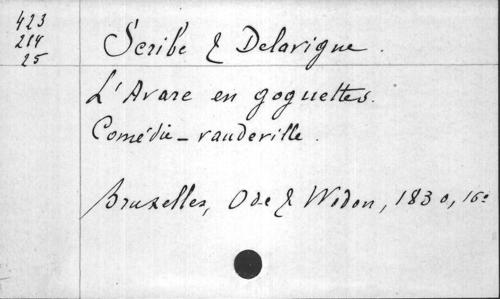 423
214
25
Scribe & Delavigne.
L'Avare en goguettes.
Comédie-vaudeville.
Bruxelles, Ode & Wodon, 1830, 16°